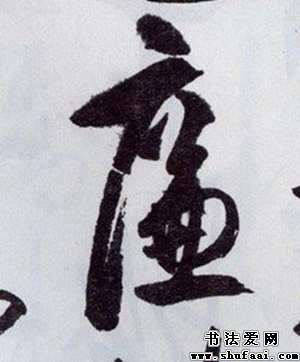 廉
书法爱网
www.shufaai.com